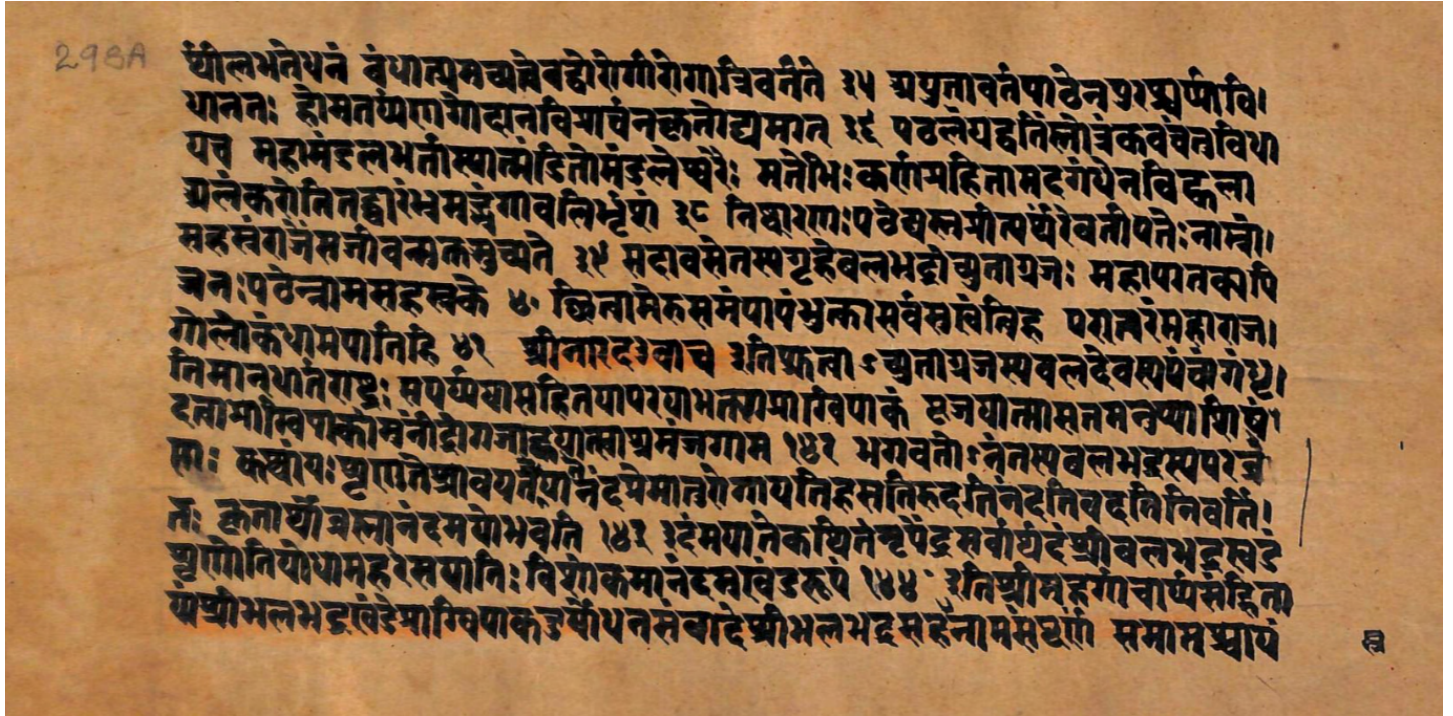 298A
र्थीलभतेधनं बंधात्प्रमुच्यतेबद्धोरोगीरोगान्निवर्तते ३५ अयुतावर्तपाठेनपुरश्चर्याविः
धानतः होमतर्पणगोदानविप्रार्चनकृतोद्यमात् ३६ पटलंपद्धतिंस्तोत्रंकवचंतुविधा
यच महामंडलभर्तास्यान्मंडितोमंडलेश्वरैः मत्तेभैःकर्णप्रहितामदगंधेनविह्वला
अलंकरोतितद्द्वारंभ्रमद्भृंगावलिर्भृशं ३८ निष्कारणःपठेद्यस्तुप्रीत्यर्थंरेवतीपतेःनाम्नां
सहस्रंराजेंसजीवन्मुक्तमुच्यते ३९ सदावसेत्तस्यगृहेबलभद्रोच्युताग्रजः महापातक्यपि
जनःपठेन्नामसहस्रकं ४० छित्वामेरुसमंपापंभुक्तासर्वसुखंत्विह परात्परंमहाराज
गोलोकंधामयातिहि ४१ श्रीनारदउवाच इतिश्रुत्वाऽच्युताग्रजस्यबलदेवस्यपंचांगंधृ
तिमान्धार्तराष्ट्रः सपर्ययासहितयापरयाभक्त्याप्राग्विपाकं पूजयामासतमनुज्ञाप्याशिषं
दत्वाप्राग्विपाकोमुनींद्रोगजाह्वयात्स्वाश्रमंजगाम १४२ भगवतोऽनंतस्यबलभद्रस्यपरब्र
ह्मणः कथांयःशृणुतेश्रावयतेतयानंदमयो
तः कृतार्थो भवति १४३ इदंमयातेकथितंनृपेंद्रसर्वार्थदंश्रीबलभद्रखंडं
शृणोतियोधामहरेःसयाति विशोकमानंदमखंडरूपं १४४ इतिश्रीमद्गर्गाचार्यसंहिता
यांश्रीभलभद्रखंडेप्राग्विपाकदुर्योधनसंवादेश्रीभलभद्रसहस्रनामसंपूर्णं समाप्तश्चायं